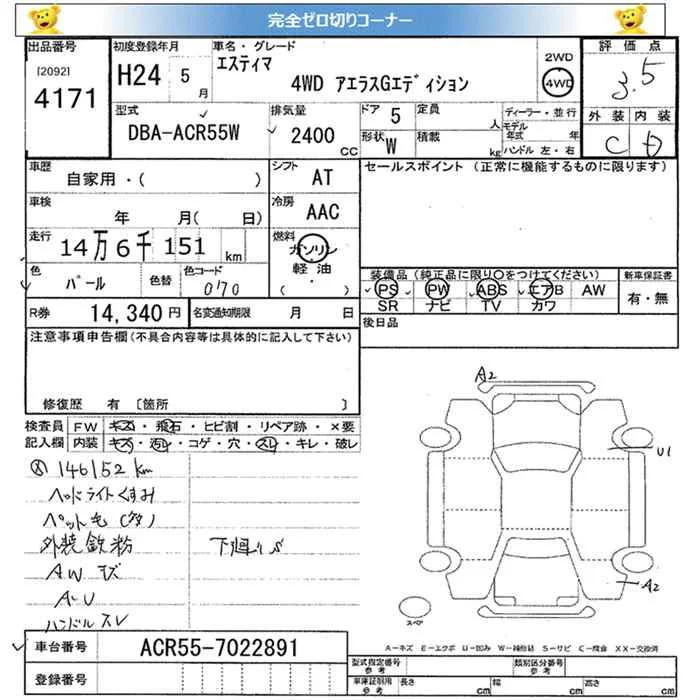 完全ゼロ切りコーナー
出品番号
[2092]
4171
初度登録年月
H24 5 月
車名・グレード
エスティマ
4WD アエラスGエディション
2WD
4WD
評価点
3.5
外装 内装
C D
型式
DBA-ACR55W
排気量
2400 CC
ドア 5
形状 W
定員 人
積載 kg
ディーラー・並行
モデル年式 年
ハンドル 左・右
車歴
自家用・( )
シフト AT
セールスポイント (正常に機能するものに限ります)
車検
年 月( 日)
冷房 AAC
走行
14万6千151 km
燃料
ガソリン
軽油
( ・ )
色
パール
色替
色コード
070
装備品 (純正品に限り○をつけてください)
PS PW ABS エアB AW
SR ナビ TV カワ
新車保証書
有・無
R券 14,340 円
名変通知期限 月 日
後日品
注意事項申告欄 (不具合内容等は具体的に記入して下さい)
修復歴 有 〔箇所 〕
検査員記入欄
FW キズ・飛石・ヒビ割・リペア跡・×要
内装 キズ・汚レ・コゲ・穴・スレ・キレ・破レ
146152 km
ヘッドライトくすみ
ペット毛 (多)
外装鉄粉
下廻りS
AW キズ
A・U
ハンドルスレ
A2
U1
A2
スペア
A-キズ E-エクボ U-凹み W-補修跡 S-サビ C-腐食 XX-交換済
車台番号 ACR55-7022891
登録番号
型式指定番号 参考
類別区分番号 参考
車庫証明用 参考
長さ cm
幅 cm
高さ cm